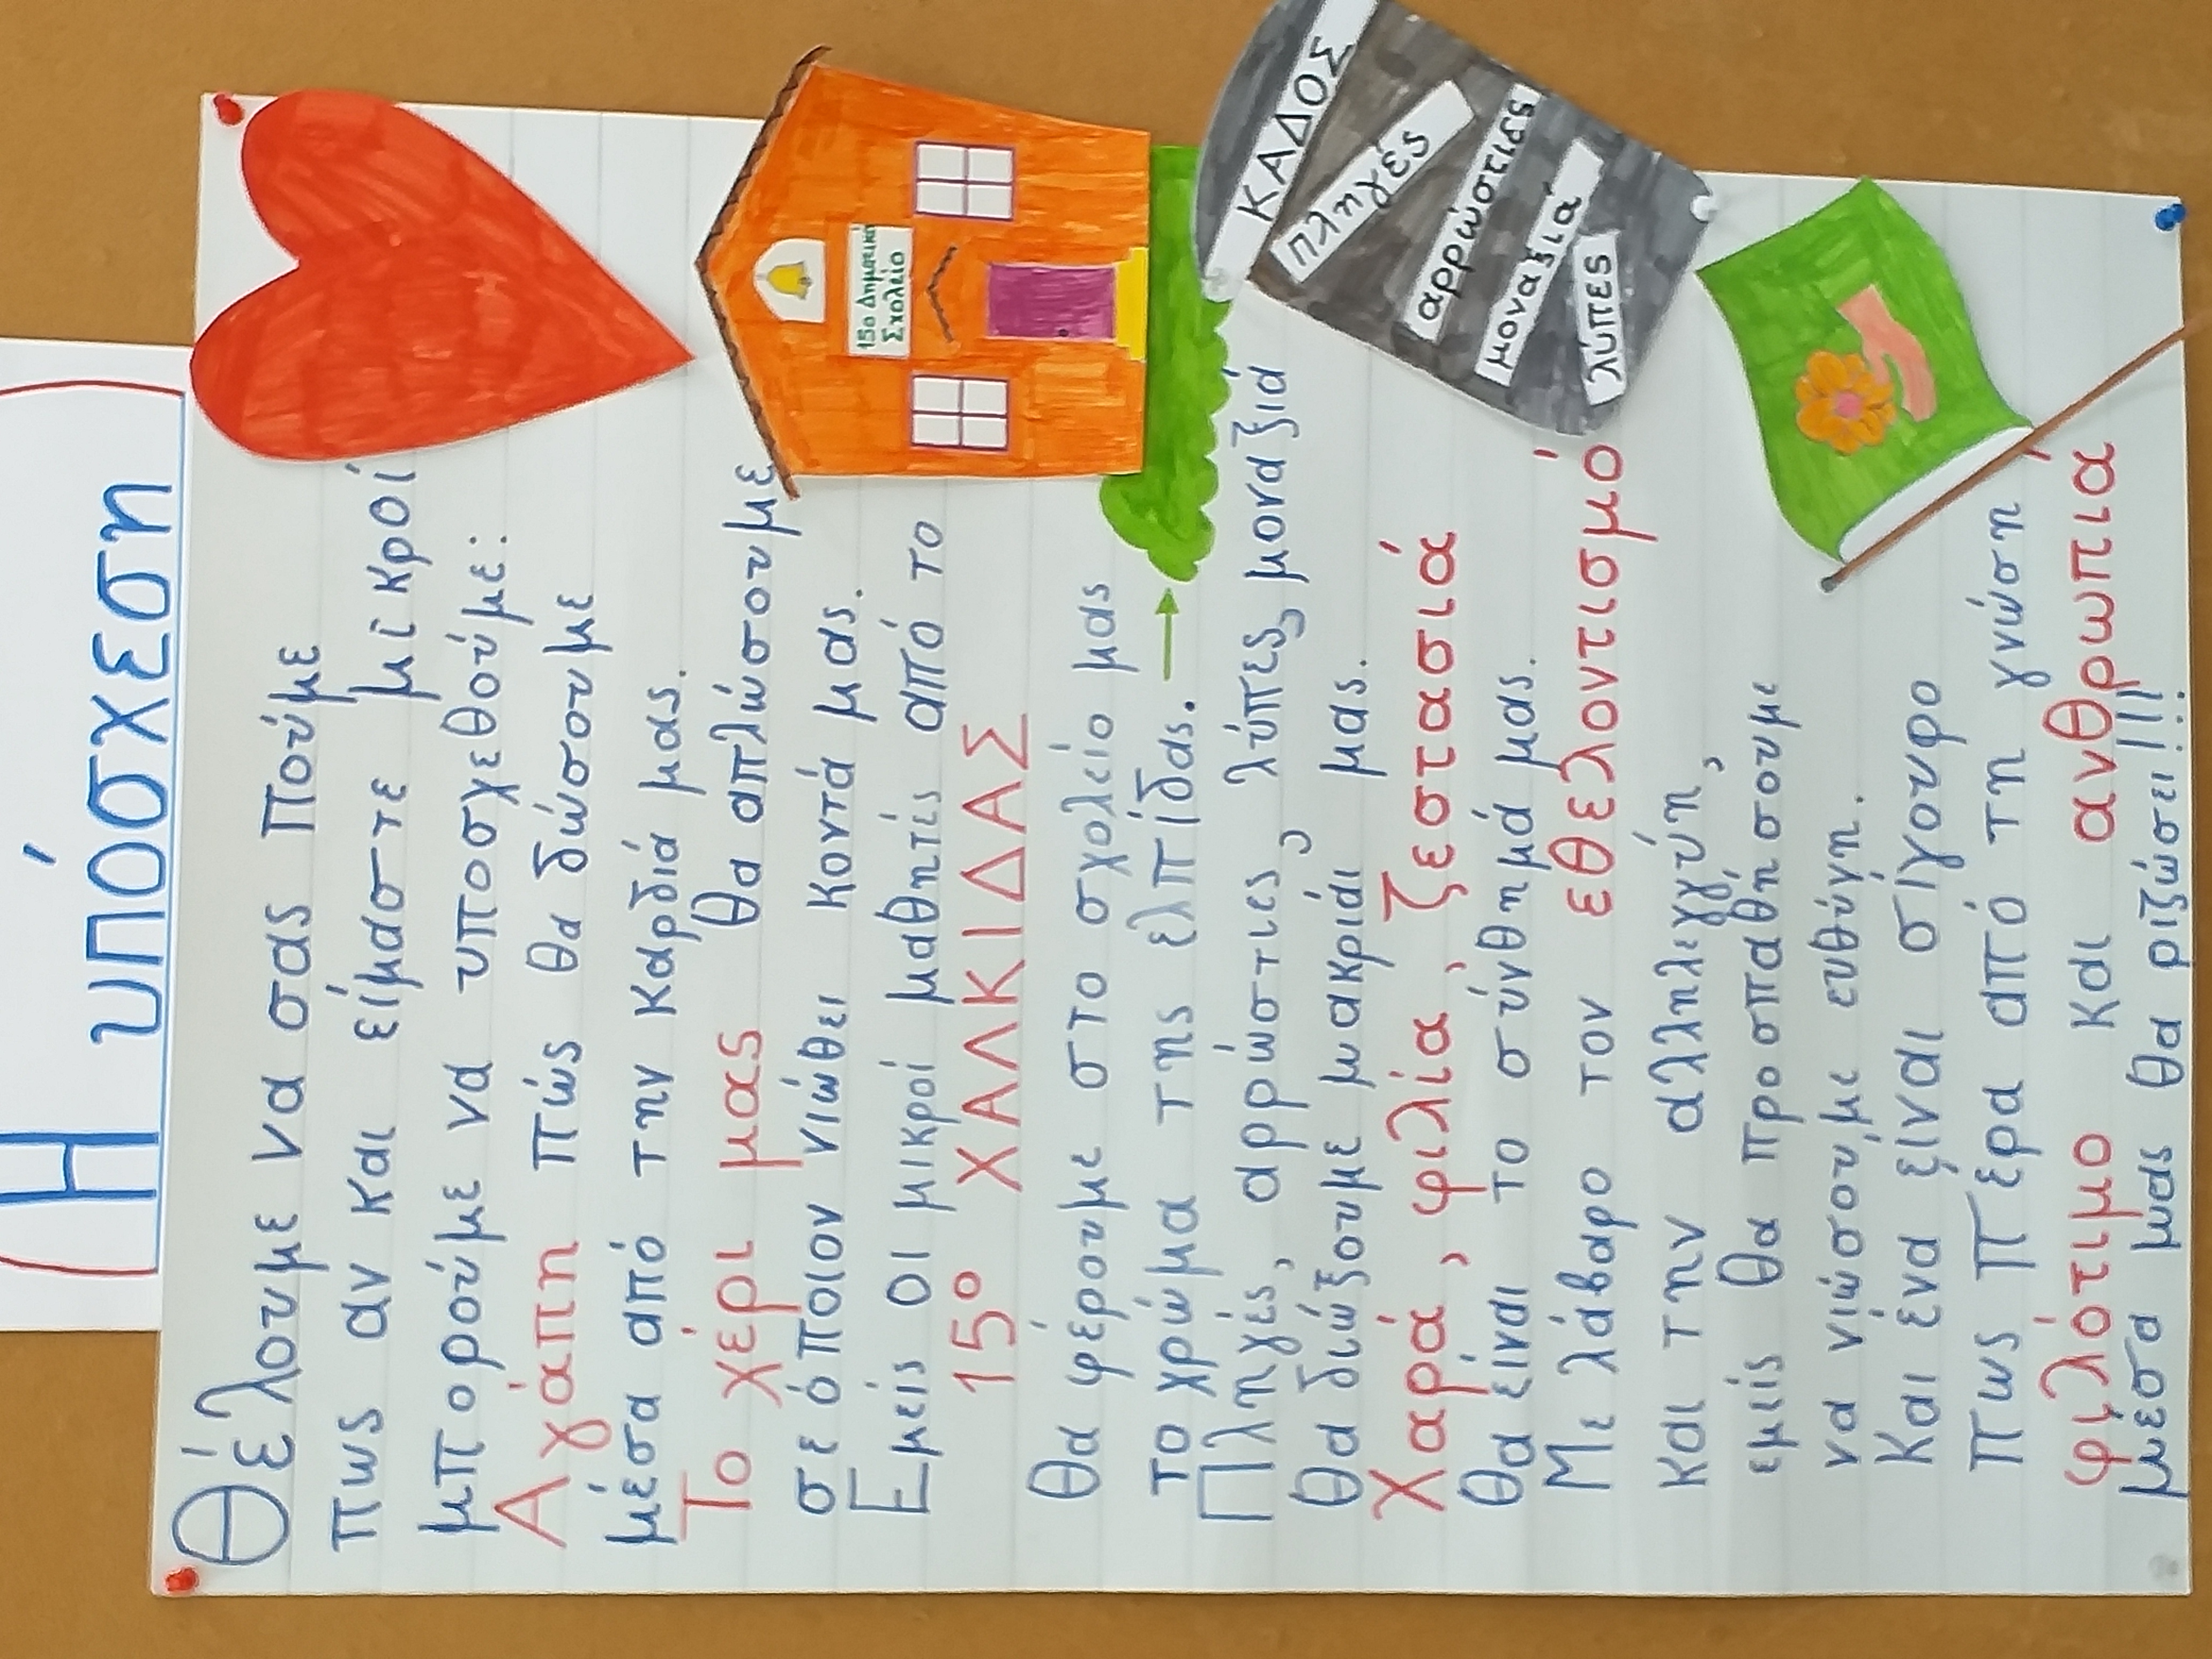 Η υπόσχεση
Θέλουμε να σας πούμε
πως αν και είμαστε μικροί
μπορούμε να υποσχεθούμε:
Αγάπη πώς θα δώσουμε
μέσα από την καρδιά μας.
Το χέρι μας θα απλώσουμε
σε όποιον νιώθει κοντά μας.
Εμείς οι μικροί μαθητές από το
15ο ΧΑΛΚΙΔΑΣ
Θα φέρουμε στο σχολείο μας
το χρώμα της ελπίδας. →
Πληγές, αρρώστιες, λύπες, μοναξιά
Θα διώξουμε μακριά μας.
Χαρά, φιλία, ζεστασιά
Θα είναι το σύνθημά μας.
Με λάβαρο τον εθελοντισμό
Και την αλληλεγγύη,
εμείς θα προσπαθήσουμε
να νιώσουμε ευθύνη.
Και ένα είναι σίγουρο
πως πέρα από τη γνώση
φιλότιμο και ανθρωπιά
μέσα μας θα ριζώσει!!!
15ο Δημοτικό
Σχολείο
ΚΑΔΟΣ
πληγές
αρρώστιες
μοναξιά
λύπες